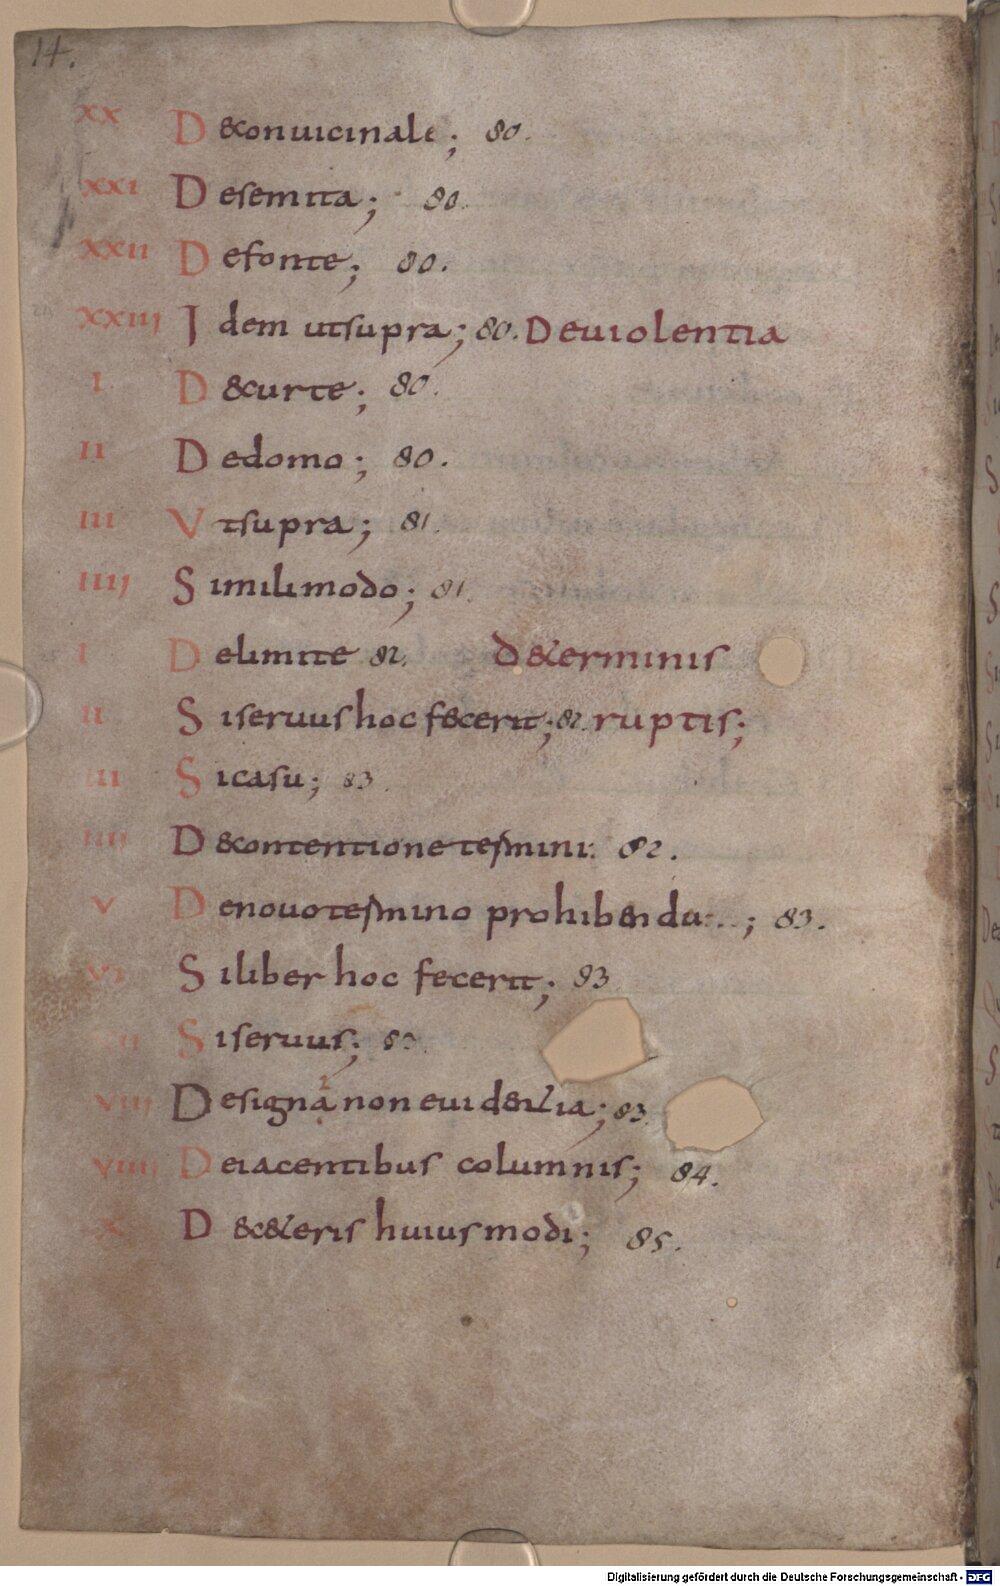 14.
XX D &conuicinale; 80.
XXI D esemita; 80.
XXII D efonte; 80.
XXIII I dem utsupra; 80. D euiolentia
I D &curte; 80.
II D edomo; 80.
III V tsupra; 81.
IIII S imilimodo; 81.
I D elimite 82. d&erminis
II S iseruushoc fecerit; 82. ruptis;
III S icasu; 83
IIII D &contentione termini: 82.
V D enouotermino prohibendu...; 83.
VI S iliber hoc fecerit; 83
VII S iseruus;
VIII D esigna non euidentia; 83.
VIIII D eiacentibus columnis; 84.
X D &c&eris huiusmodi; 85.
Digitalisierung gefördert durch die Deutsche Forschungsgemeinschaft - DFG